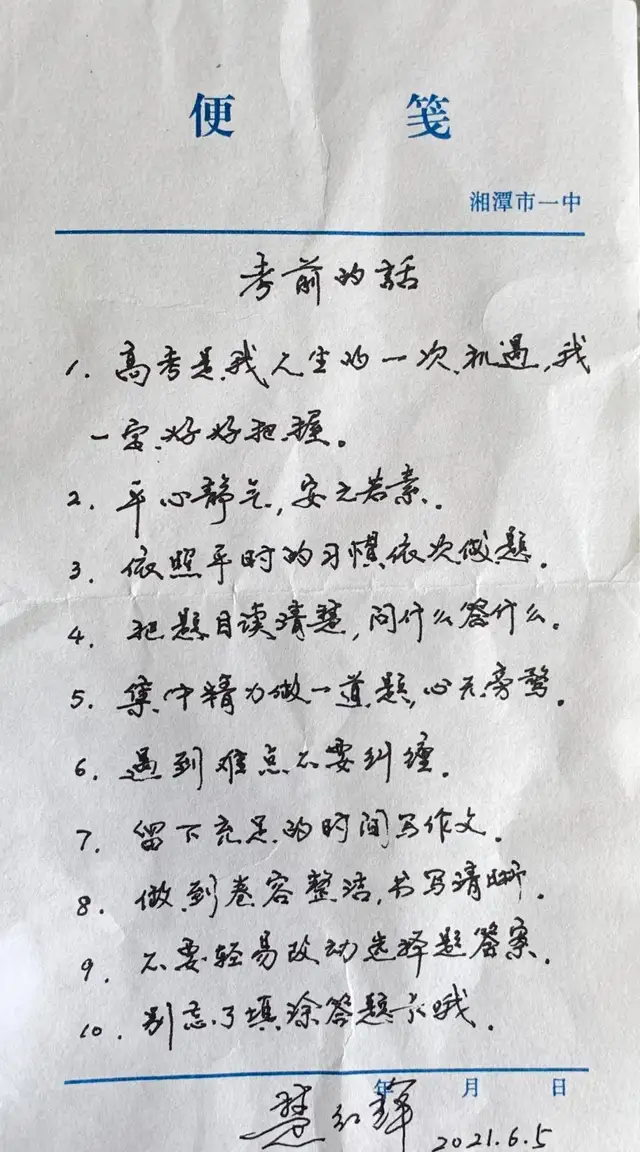 便 笺
湘潭市一中
考前的話
1. 高考是我人生的一次机遇，我
一定好好把握。
2. 平心静气，安之若素。
3. 依照平时的习惯依次做题。
4. 把题目读清楚，问什么答什么。
5. 集中精力做一道题，心无旁骛。
6. 遇到难点不要纠缠。
7. 留下充足的时间写作文。
8. 做到卷容整洁，书写清晰。
9. 不要轻易改动选择题答案。
10. 别忘了填涂答题卡哦。
年 月 日
红辉
2021.6.5